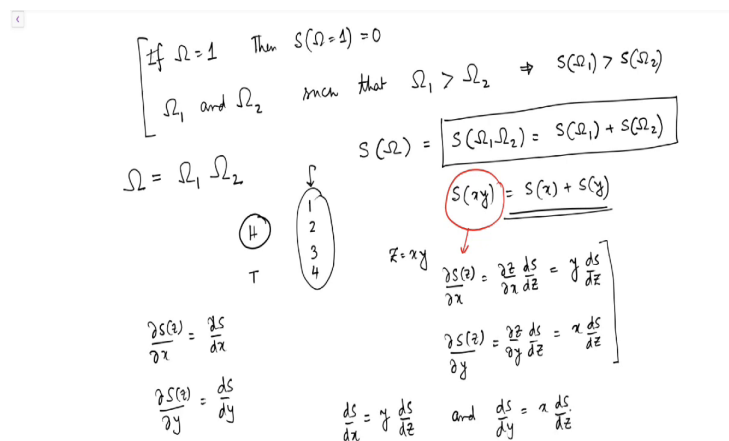 If Ω=1 Then S(Ω=1) = 0
Ω₁ and Ω₂ such that Ω₁ > Ω₂ ⇒ S(Ω₁) > S(Ω₂)
S(Ω) = S(Ω₁Ω₂) = S(Ω₁) + S(Ω₂)
Ω = Ω₁ Ω₂
S(xy) = S(x) + S(y)
H
T
1
2
3
4
Z = xy
∂S(z)/∂x = ∂z/∂x ds/dz = y ds/dz
∂S(z)/∂y = ∂z/∂y ds/dz = x ds/dz
∂S(z)/∂x = ds/dx
∂S(z)/∂y = ds/dy
ds/dx = y ds/dz and ds/dy = x ds/dz